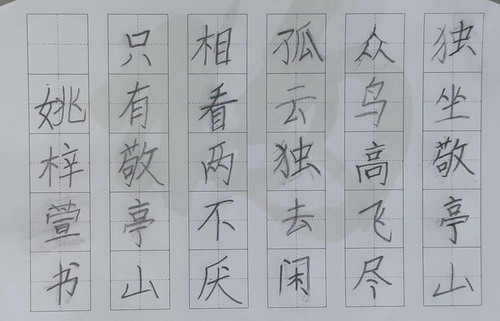 独坐敬亭山
众鸟高飞尽
孤云独去闲
相看两不厌
只有敬亭山
姚梓萱书